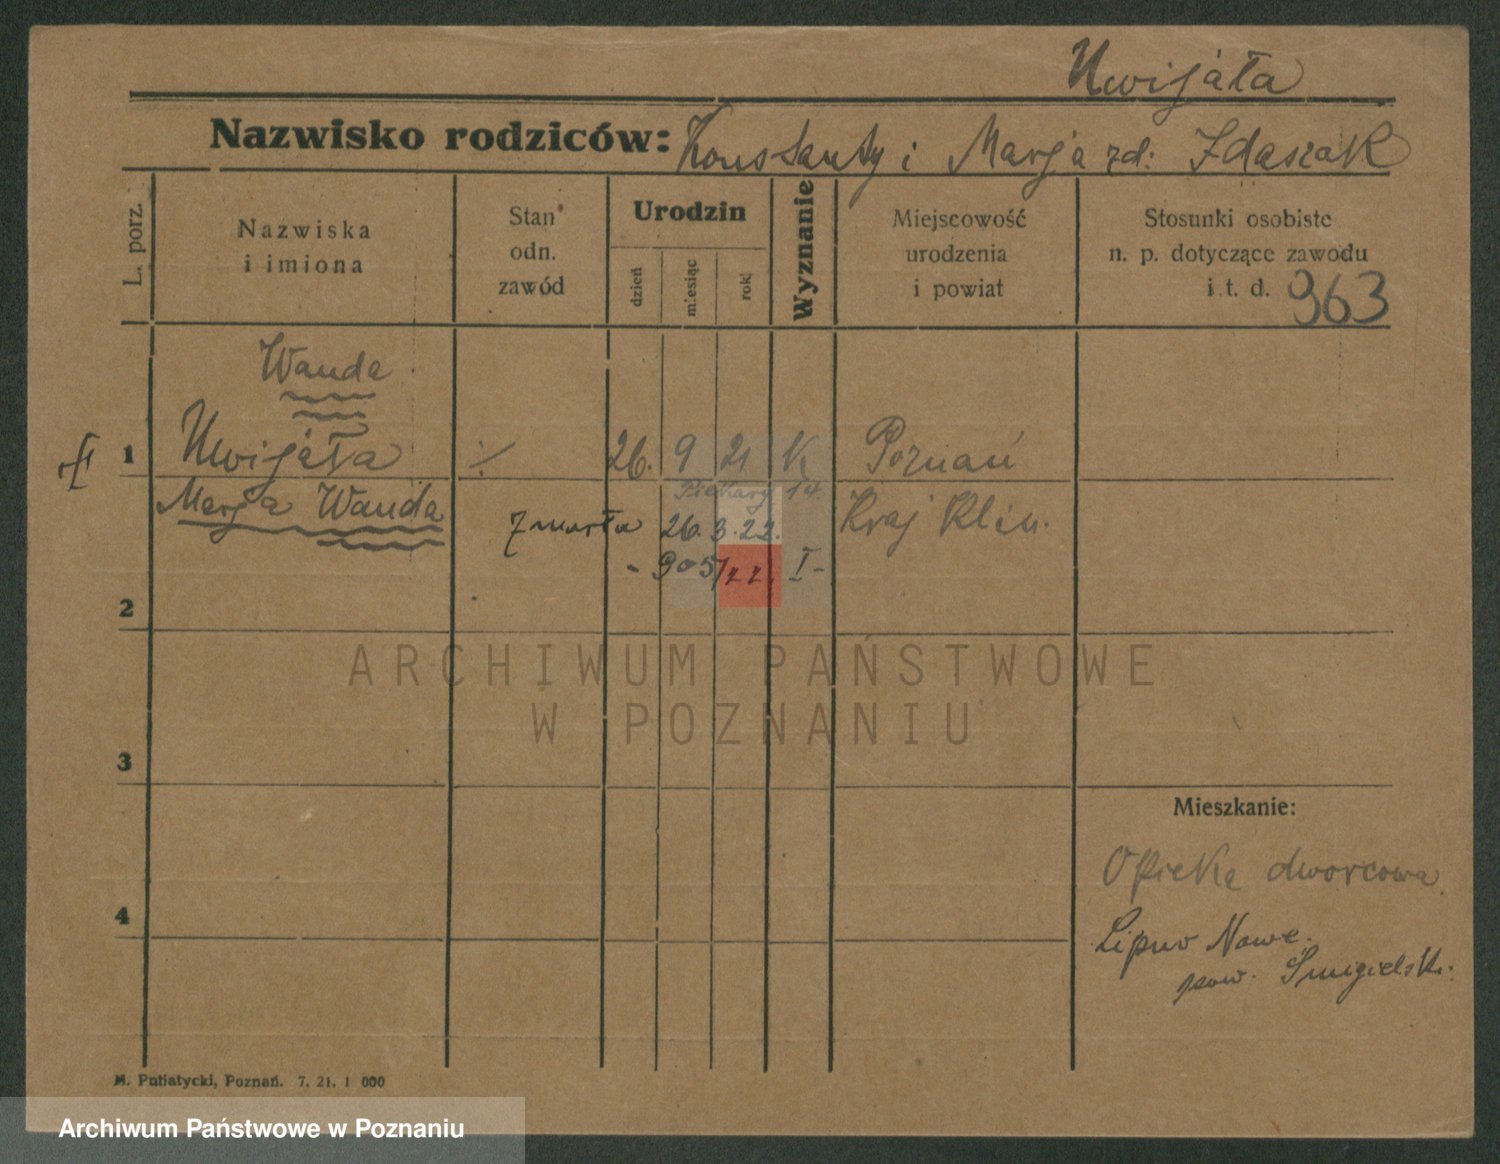 Uwijáła
Nazwisko rodziców: Konstanty i Marja zd: Zdaszak
L. porz.
Nazwiska
i imiona
Stan
odn.
zawód
Urodzin
dzień
miesiąc
rok
Wyznanie
Miejscowość
urodzenia
i powiat
Stosunki osobiste
n. p. dotyczące zawodu
i t. d. 963
Wanda
1 Uwijáła ./. 26. 9 21 K Poznań
Marja Wanda Piekary 14. Kraj Klin.
Zmarła 26. 3. 22.
- 905/22. I -
2
ARCHIWUM PAŃSTWOWE
W POZNANIU
3
Mieszkanie:
Opieka dworcowa
4
Lipno Nowe.
pow. Śmigielski.
M. Putiatycki, Poznań. 7. 21. 1 000
Archiwum Państwowe w Poznaniu